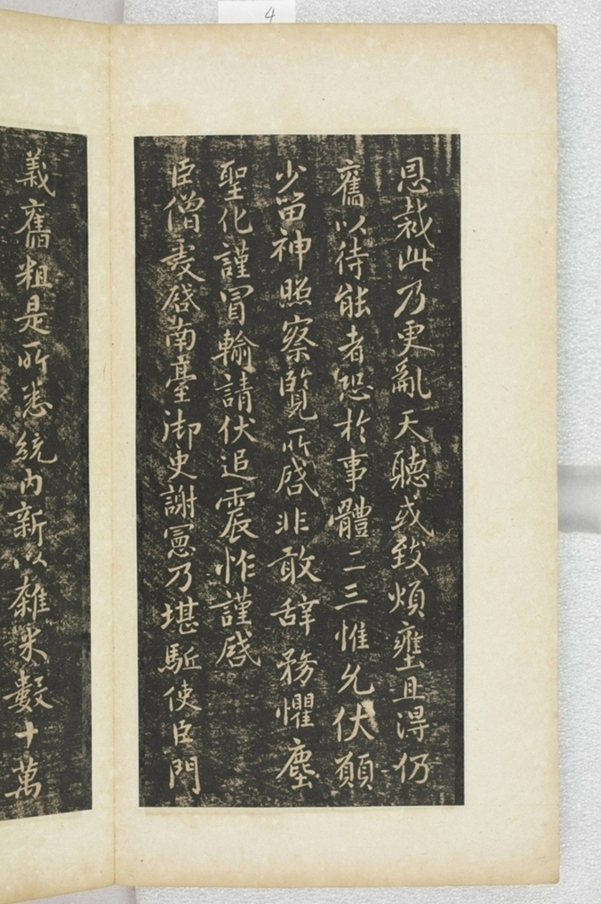 4
恩裁此乃更亂天聽或致煩壅且得仍
舊以待能者恐於事體二三惟允伏願
少留神照察覽所啓非敢辞務懼塵
聖化謹冒輸請伏追震怍謹啓
臣僧虔啓南臺御史謝憲乃堪駈使臣門
義舊粗是所悉統内新以雜米數十萬